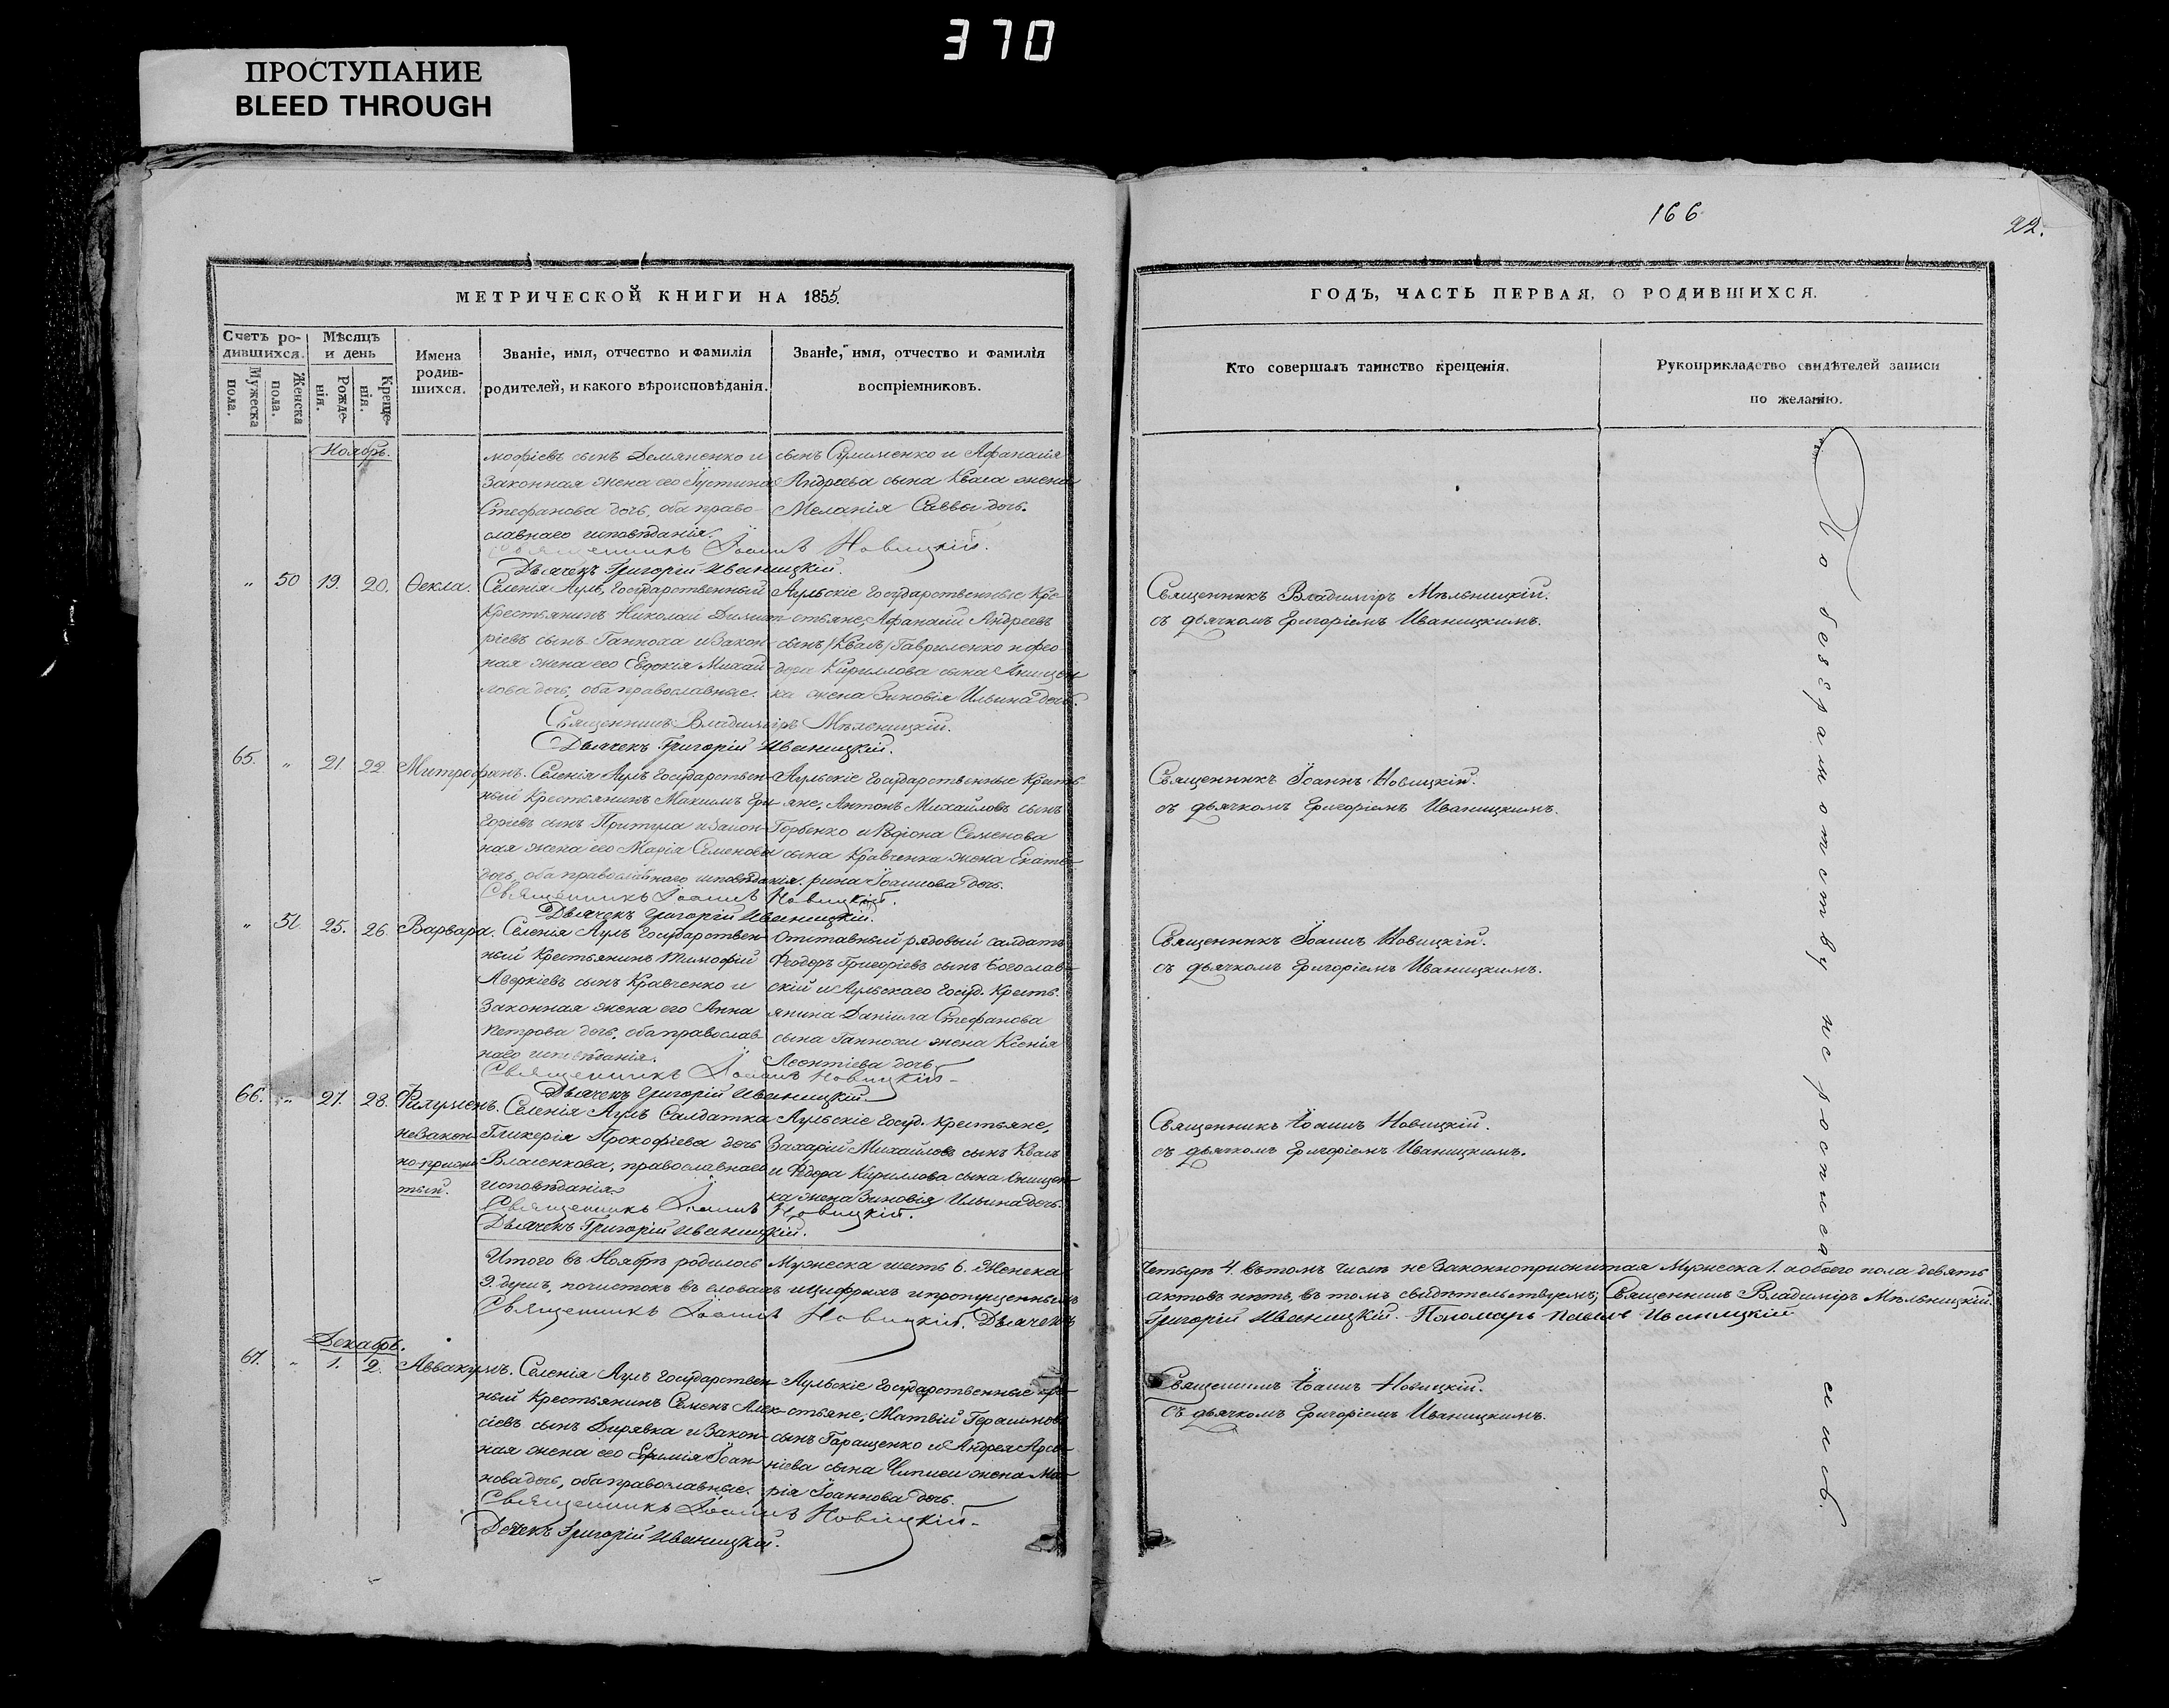 370
ПРОСТУПАНИЕ
BLEED THROUGH
166
22.
МЕТРИЧЕСКОЙ КНИГИ НА 1855.
Счетъ родившихся.
Мужеска пола.
Женска пола.
Мѣсяцъ и день
Рожденія.
Крещенія.
Имена родившихся.
Званіе, имя, отчество и фамилія
родителей, и какого вѣроисповѣданія.
Званіе, имя, отчество и фамилія
воспріемниковъ.
Ноябрь.
мофіевъ сынъ Демяненко и
Законная жена его Іустина
Стефанова дочь, оба право-
славнаго исповѣданія.
сынъ и Афанасія
Андреева сына Кваса жена
Меланія Саввы дочь.
Священникъ Іоаннъ Новицкій.
Дьячекъ Григорій Иваницкій.
„ 50 19. 20. Ѳекла.
Селенія Аулъ, Государственный
Крестьянинъ Николай Димит-
ріевъ сынъ Ганноха и Закон-
ная жена его Евдокія Михай-
лова дочь, оба православные.
Аульскіе Государственные Кре-
стьяне, Афанасій Андреевъ
сынъ /Квасъ/ Гавриленко и Фео-
дора Кириллова сына Онищен-
ка жена Зиновія Ильина дочь.
Священникъ Владиміръ Мѣльницкій.
Дьячекъ Григорій Иваницкій.
65. „ 21 22. Митрофанъ.
Селенія Аулъ Государствен-
ный Крестьянинъ Максимъ Гри-
горіевъ сынъ Притула и Закон-
ная жена его Марія Семенова
дочь, оба православнаго исповѣданія.
Аульскіе Государственные Кресть-
яне, Антонъ Михайловъ сынъ
Горбенко и Родіона Семенова
сына Кравченка жена Екате-
рина Іоаннова дочь.
Священникъ Іоаннъ Новицкій.
Дьячекъ Григорій Иваницкій.
„ 51 25. 26. Варвара.
Селенія Аулъ Государствен-
ный Крестьянинъ Тимофій
Аверкіевъ сынъ Кравченко и
Законная жена его Анна
Петрова дочь, оба православ-
наго исповѣданія.
Отставный рядовый салдатъ
Феодоръ Григоріевъ сынъ Богослав-
скій и Аульскаго Госуд. Кресть-
янина Даніила Стефанова
сына Ганнохи жена Ксенія
Леонтіева дочь
Священникъ Іоаннъ Новицкій
Дьячекъ Григорій Иваницкій
66. „ 27. 28. Филуменъ.
незакон-
но-прижи-
тый.
Селенія Аулъ Салдатка
Гликерія Прокофіева дочь
Власенкова, православнаго
исповѣданія
Аульскіе Госуд. Крестьяне,
Захарій Михайловъ сынъ Квасъ
и Фѣдора Кириллова сына Онищен-
ка жена Зиновія Ильина дочь.
Священникъ Іоаннъ Новицкій.
Дьячекъ Григорій Иваницкій.
Итого въ Ноябрѣ родилось Мужеска шесть 6. Женска
9. душъ, почистокъ въ словахъ и цифрахъ и пропущенныхъ
Священникъ Іоаннъ Новицкій. Дьячекъ
Декабрь.
67. „ 1. 2. Аввакумъ.
Селенія Аулъ Государствен-
ный Крестьянинъ Семенъ Алек-
сіевъ сынъ Дирявка и Закон-
ная жена его Ефимія Іоан-
нова дочь, оба православные.
Аульскіе Государственные кре-
стьяне, Матвій Герасимовъ
сынъ Таращенко и Андрея Арсе-
ніева сына жена Ма-
рія Іоаннова дочь.
Священникъ Іоаннъ Новицкій
Дьячекъ Григорій Иваницкій.
ГОДЪ, ЧАСТЬ ПЕРВАЯ, О РОДИВШИХСЯ.
Кто совершалъ таинство крещенія.
Рукоприкладство свидѣтелей записи
по желанію.
Священникъ Владиміръ Мѣльницкій.
съ дьячкомъ Григоріемъ Иваницкимъ.
Священникъ Іоаннъ Новицкій.
съ дьячкомъ Григоріемъ Иваницкимъ.
Священникъ Іоаннъ Новицкій.
съ дьячкомъ Григоріемъ Иваницкимъ.
Священникъ Іоаннъ Новицкій.
съ дьячкомъ Григоріемъ Иваницкимъ.
Четыре 4 въ томъ числѣ не Законноприжитая Мужеска 1. а обоего пола девять
актовъ нѣтъ, въ томъ свидѣтельствуемъ; Священникъ Владиміръ Мѣльницкій.
Григорій Иваницкій. Пономарь Павелъ Иваницкій
Священникъ Іоаннъ Новицкій.
Съ дьячкомъ Григоріемъ Иваницкимъ.
По безграмотству не росписались.